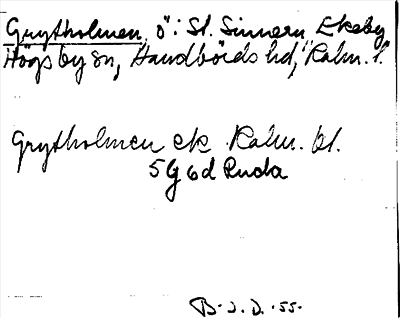 Grytholmen, ö: St. Sinnern, Ekeby
Högsby sn, Handbörds hd, Kalm. l.
Grytholmen ek Kalm. bl.
5G 6d Ruda
B. J. D. -55-